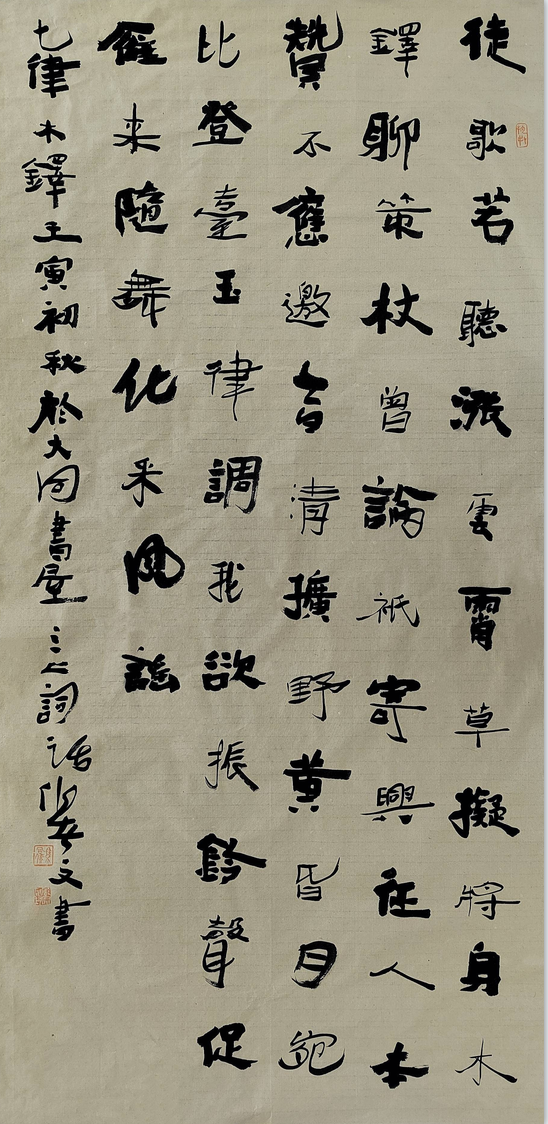 徒歌若聽漲雲霄草擬將身木
鐸聊策杖曾論祇寄興征人本
不應邀音清擴野黃昏月
比登臺玉律調我欲振鈴聲促
来隨舞化采風謠
七律木鐸壬寅初秋於大同書屋詞話文書